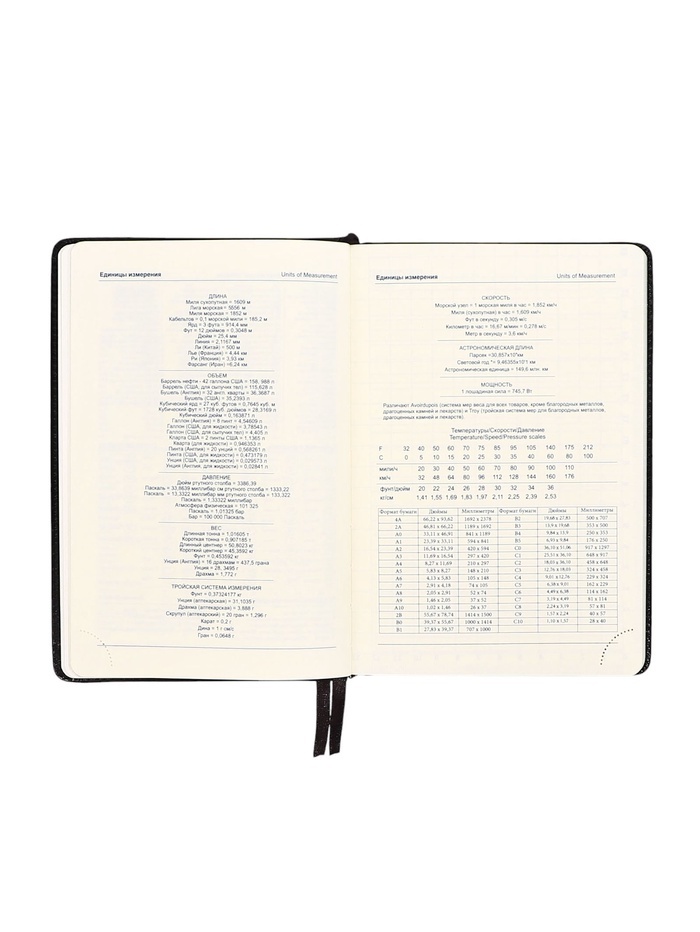 Единицы измерения
Units of Measurement
ДЛИНА
Миля сухопутная = 1609 м
Лига морская = 5556 м
Миля морская = 1852 м
Кабельтов = 0,1 морской мили = 185,2 м
Ярд = 3 фута = 914,4 мм
Фут = 12 дюймов = 0,3048 м
Дюйм = 25,4 мм
Линия = 2,1167 мм
Ли (Китай) = 500 м
Лье (Франция) = 4,44 км
Ри (Япония) = 3,93 км
Фарсанг (Иран) =6,24 км
ОБЪЕМ
Баррель нефти - 42 галлона США = 158, 988 л
Баррель (США, для сыпучих тел) = 115,628 л
Бушель (Англия) = 32 англ. кварты = 36,3687 л
Бушель (США) = 35,2393 л
Кубический ярд = 27 куб. футов = 0,7645 куб. м
Кубический фут =1728 куб. дюймов = 28,3169 л
Кубический дюйм = 0,163871 л
Галлон (Англия) = 8 пинт = 4,54609 л
Галлон (США, для жидкости) = 3,78543 л
Галлон (США, для сыпучих тел) = 4,405 л
Кварта США = 2 пинты США = 1,1365 л
Кварта (для жидкости) = 0,946353 л
Пинта (Англия) = 20 унций = 0,568261 л
Пинта (США, для жидкости) = 0,473179 л
Унция (США, для жидкости) = 0,029573 л
Унция (Англия, для жидкости) = 0,02841 л
ДАВЛЕНИЕ
Дюйм ртутного столба = 3386,39
Паскаль = 33,8639 миллибар см ртутного столба = 1333,22
Паскаль = 13,3322 миллибар мм ртутного столба = 133,322
Паскаль = 1,33322 миллибар
Атмосфера физическая = 101 325
Паскаль = 1,01325 бар
Бар = 100 000 Паскаль
ВЕС
Длинная тонна = 1,01605 т
Короткая тонна = 0,907185 т
Длинный центнер = 50,8023 кг
Короткий центнер = 45,3592 кг
Фунт = 0,453592 кг
Унция (Англия) = 16 драхмам = 437,5 грана
Унция = 28, 3495 г
Драхма = 1,772 г
ТРОЙСКАЯ СИСТЕМА ИЗМЕРЕНИЯ
Фунт = 0,37324177 кг
Унция (аптекарская) = 31,1035 г
Драхма (аптекарская) = 3,888 г
Скрупул (аптекарский) = 20 гран = 1,296 г
Карат = 0,2 г
Дина = 1 г см/с
Гран = 0,0648 г
Единицы измерения
Units of Measurement
СКОРОСТЬ
Морской узел = 1 морская миля в час = 1,852 км/ч
Миля (сухопутная) в час = 1,609 км/ч
Фут в секунду = 0,305 м/с
Километр в час = 16,67 м/мин = 0,278 м/с
Метр в секунду = 3,6 км/ч
АСТРОНОМИЧЕСКАЯ ДЛИНА
Парсек =30,857x10¹²км
Световой год = 9,46355x10¹²км
Астрономическая единица = 149,6 млн. км
МОЩНОСТЬ
1 лошадиная сила = 745,7 Вт
Различают Avoirdupois (система мер веса для всех товаров, кроме благородных металлов,
драгоценных камней и лекарств) и Troy (тройская система мер для благородных металлов,
драгоценных камней и лекарств).
Температуры/Скорости/Давление
Temperature/Speed/Pressure scales
F 32 40 50 60 70 80 85 95 105 140 175 212
C 0 5 10 15 20 25 30 35 40 60 80 100
мили/ч 20 30 40 50 60 70 80 90 100 110
км/ч 32 48 64 80 96 112 128 144 160 176
фунт/дюйм 20 22 24 26 28 30 32 34 36
кг/см 1,41 1,55 1,69 1,83 1,97 2,11 2,25 2,39 2,53
Формат бумаги Дюймы Миллиметры Формат бумаги Дюймы Миллиметры
4A 66,22 x 93,62 1692 x 2378 B2 19,68 x 27,83 500 x 707
2A 46,81 x 66,22 1189 x 1692 B3 13,9 x 19,68 353 x 500
A0 33,11 x 46,81 841 x 1189 B4 9,84 x 13,9 250 x 353
A1 23,39 x 33,11 594 x 841 B5 6,93 x 9,84 176 x 250
A2 16,54 x 23,39 420 x 594 C0 36,10 x 51,06 917 x 1297
A3 11,69 x 16,54 297 x 420 C1 25,51 x 36,10 648 x 917
A4 8,27 x 11,69 210 x 297 C2 18,03 x 36,10 458 x 648
A5 5,83 x 8,27 148 x 210 C3 12,76 x 18,03 324 x 458
A6 4,13 x 5,83 105 x 148 C4 9,01 x 12,76 229 x 324
A7 2,91 x 4,18 74 x 105 C5 6,38 x 9,01 162 x 229
A8 2,05 x 2,91 52 x 74 C6 4,49 x 6,38 114 x 162
A9 1,46 x 2,05 37 x 52 C7 3,19 x 4,49 81 x 114
A10 1,02 x 1,46 26 x 37 C8 2,24 x 3,19 57 x 81
2B 55,67 x 78,74 1414 x 1500 C9 1,57 x 2,24 40 x 57
B0 39,37 x 55,67 1000 x 1414 C10 1,10 x 1,57 28 x 40
B1 27,83 x 39,37 707 x 1000